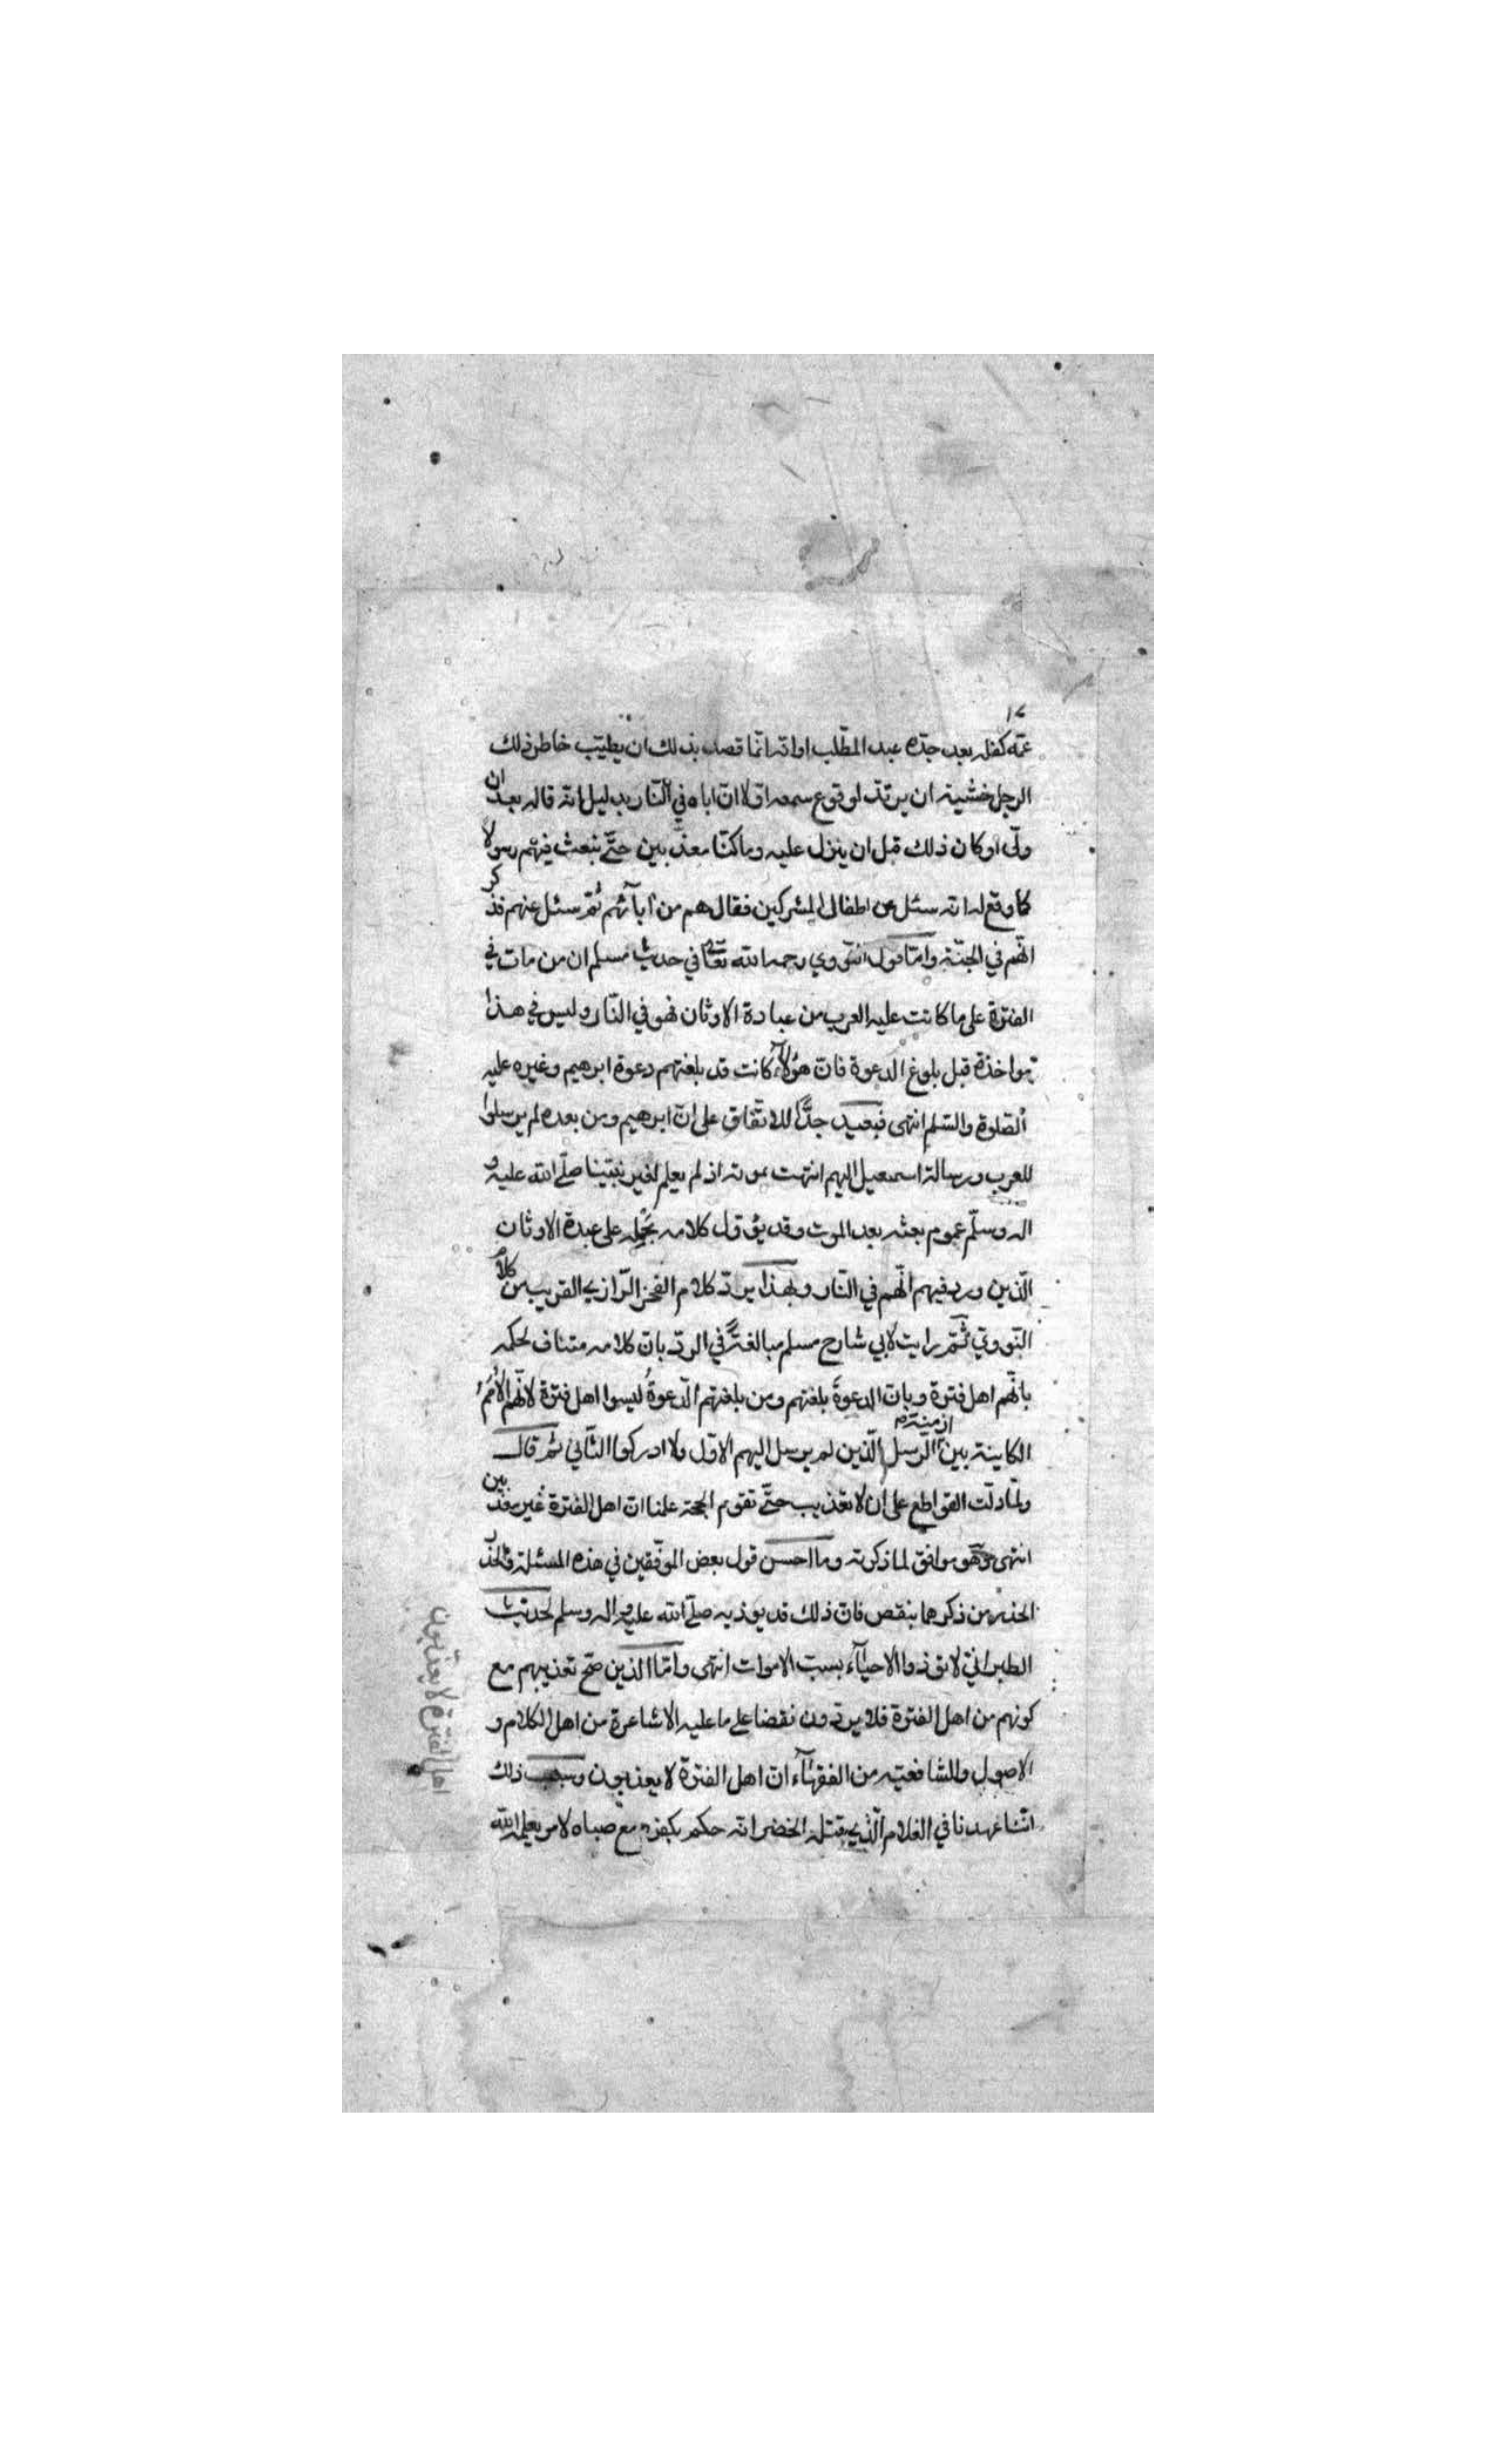 ١٧
عمّه كفله بعد جدّه عبد المطّلب او انه انّما قصد بذلك ان يطيّب خاطر ذلك
الرجل خشية ان يرتدّ لو قرع سمعه اوّلا انّ اباه في النّار بدليل انه قاله بعد ان
ولّى او كان ذلك قبل ان ينزل عليه وما كنّا معذّبين حتّى نبعث فيهم رسولا
كما وقع له انه سئل عن اطفال المشركين فقال هم من آبائهم ثمّ سئل عنهم فذكر
انّهم في الجنّة وامّا قول النّووي رحمه الله تعالى في حديث مسلم ان من مات في
الفترة على ما كانت عليه العرب من عبادة الاوثان فهو في النّار وليس في هذا
مواخذة قبل بلوغ الدعوة فانّ هؤلآء كانت قد بلغتهم دعوة ابرهيم وغيره عليه
الصّلوة والسّلم انتهى فبعيد جدًّا للاتّفاق على انّ ابرهيم ومن بعده لم يرسلوا
للعرب ورسالة اسمعيل اليهم انتهت بموته اذ لم يعلم لغير نبيّنا صلّى الله عليه و
اله وسلّم عموم بعثه بعد الموت وقد يؤول كلامه بحمله على عبدة الاوثان
الّذين ورد فيهم انّهم في النّار وبهذا يردّ كلام الفخر الرّازي القريب من كلام
النّوويّ ثمّ رايت لابي شارح مسلم مبالغةً في الردّ بانّ كلامه متناف لحكمه
بانّهم اهل فترة وبانّ الدعوة بلغتهم ومن بلغتهم الدّعوةُ ليسوا اهل فترة لانّهم الاُمَمُ
الكاينة بين ازمنة الرّسل الّذين لم يرسل اليهم الاوّل ولا ادركوا الثّاني ثم قال
ولمّا دلّت القواطع على ان لا تعذيب حتّى تقوم الحجة علمنا انّ اهل الفترة غير معذّبين
انتهى وهو موافق لما ذكرته وما احسن قول بعض الموفّقين في هذه المسئلة والحذر
الحذر من ذكرهما بنقص فانّ ذلك قد يوذيه صلّى الله عليه واله وسلم لحديث
الطبرانيّ لا تؤذوا الاحيآء بسبّ الاموات انتهى وامّا الذين صحّ تعذيبهم مع
كونهم من اهل الفترة فلا يردون نقضا على ما عليه الاشاعرة من اهل الكلام و
الاصول والشافعيّه من الفقهآء انّ اهل الفترة لا يعذبون وسبب ذلك
انّا عهدنا في الغلام الّذي قتله الخضر انه حكم بكفره مع صباه لامر يعلمه الله
اهل الفترة لا يعذّبون